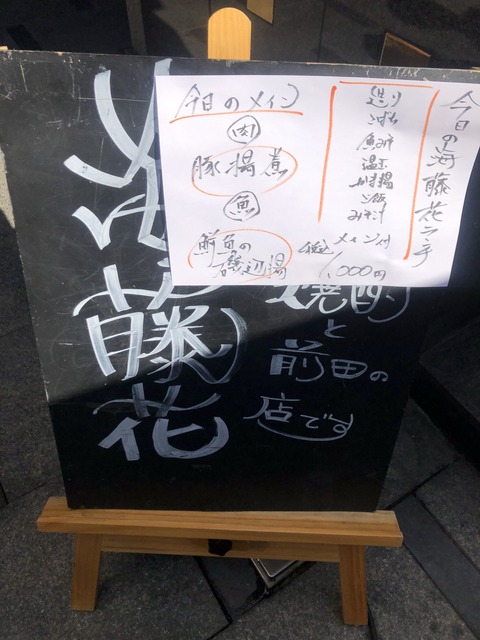 今日の海藤花ランチ
造り
魚みそ
温玉
ご飯
みそ汁
メイン付
税込
1,000円
今日のメイン
肉
豚揚煮
魚
鮮魚の磯辺揚
海藤花
焼酎
と
前田の
店です